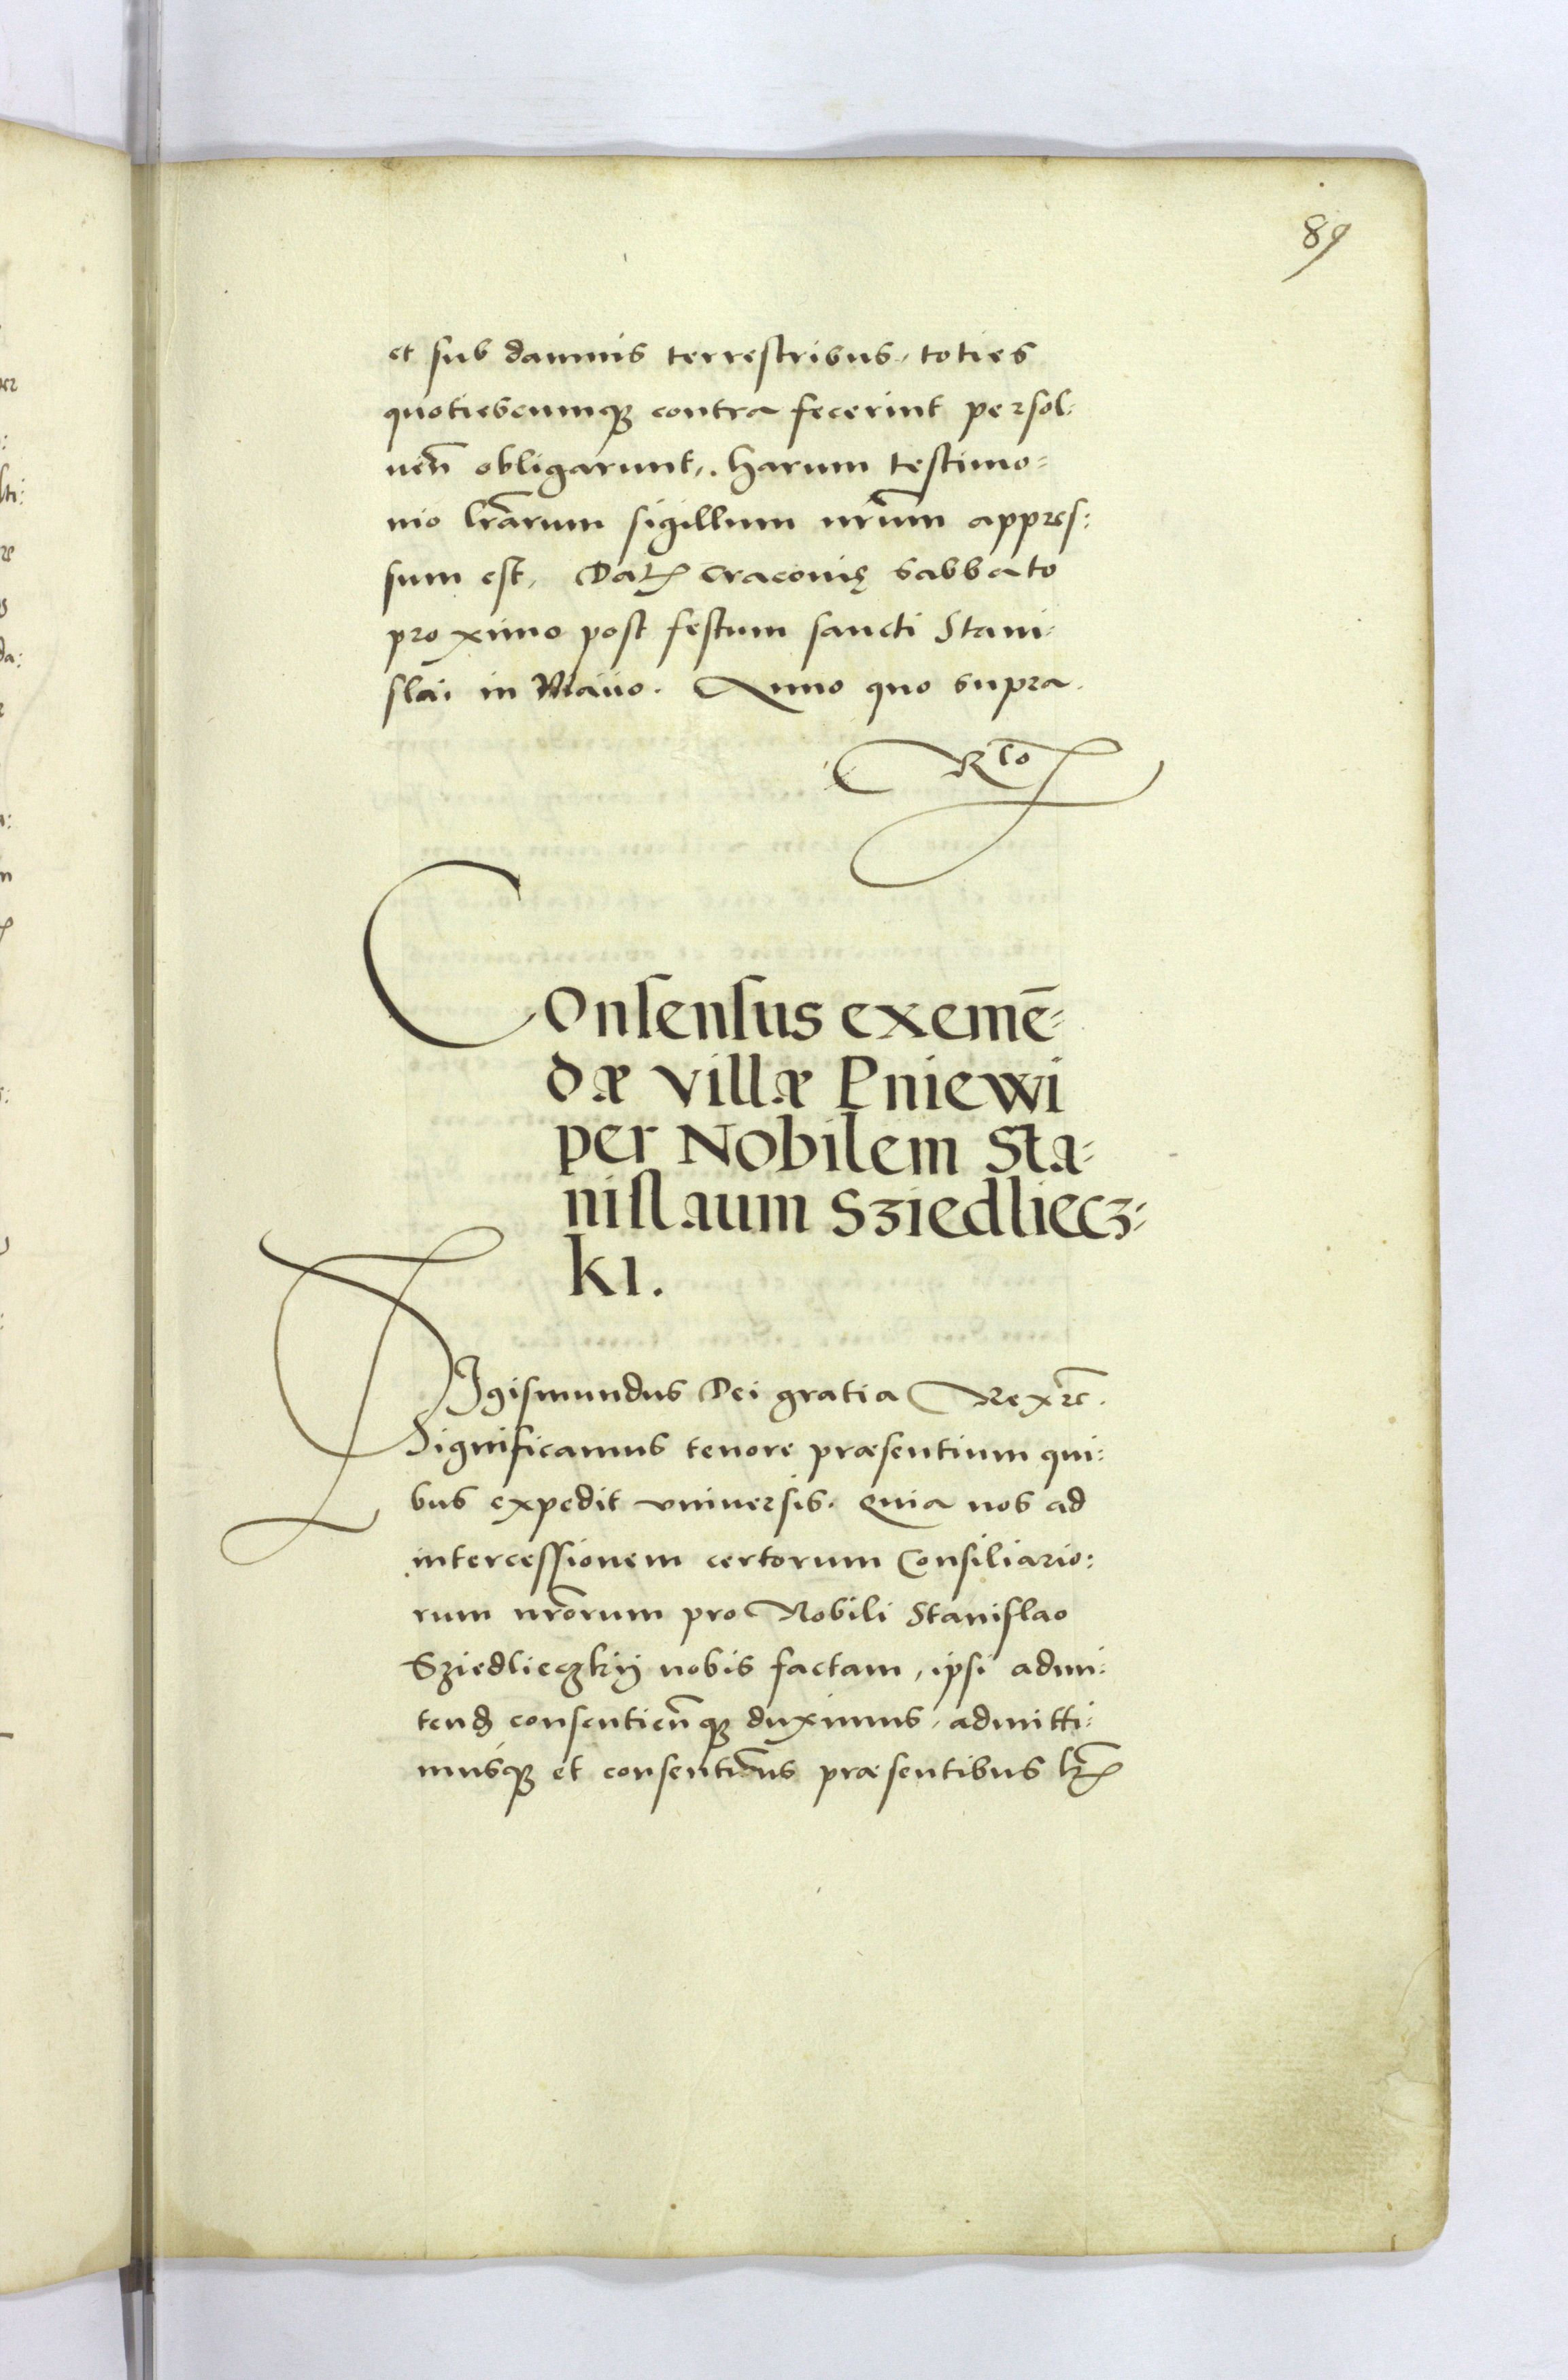 89
et sub damnis terrestribus, toties
quotiescumq3 contra fecerint persol:
ueñ obligarunt, . harum testimo=
nio lr̃arum sigillum nr̃um appres:
sum est, Datꝫ Cracouię sabbato
proximo post festum sancti Stani:
slai in Maiio. Anno quo supra.
Rto
COnsensus exemē=
dæ villæ Pniewi
per Nobilem Sta=
nislaum Sziedliecz=
ki.
SIgismundus Dei gratia Rex rc̃.
Significamus tenore præsentium qui:
bus expedit vniuersis. Quia nos ad
intercessionem certorum Consiliario:
rum nr̃orum pro Nobili Stanislao
Sziedlieczkij nobis factam, ipsi admi:
tenđ consentieñq3 duximus, admitti:
musq3 et consentim̃us præsentibus lr̃